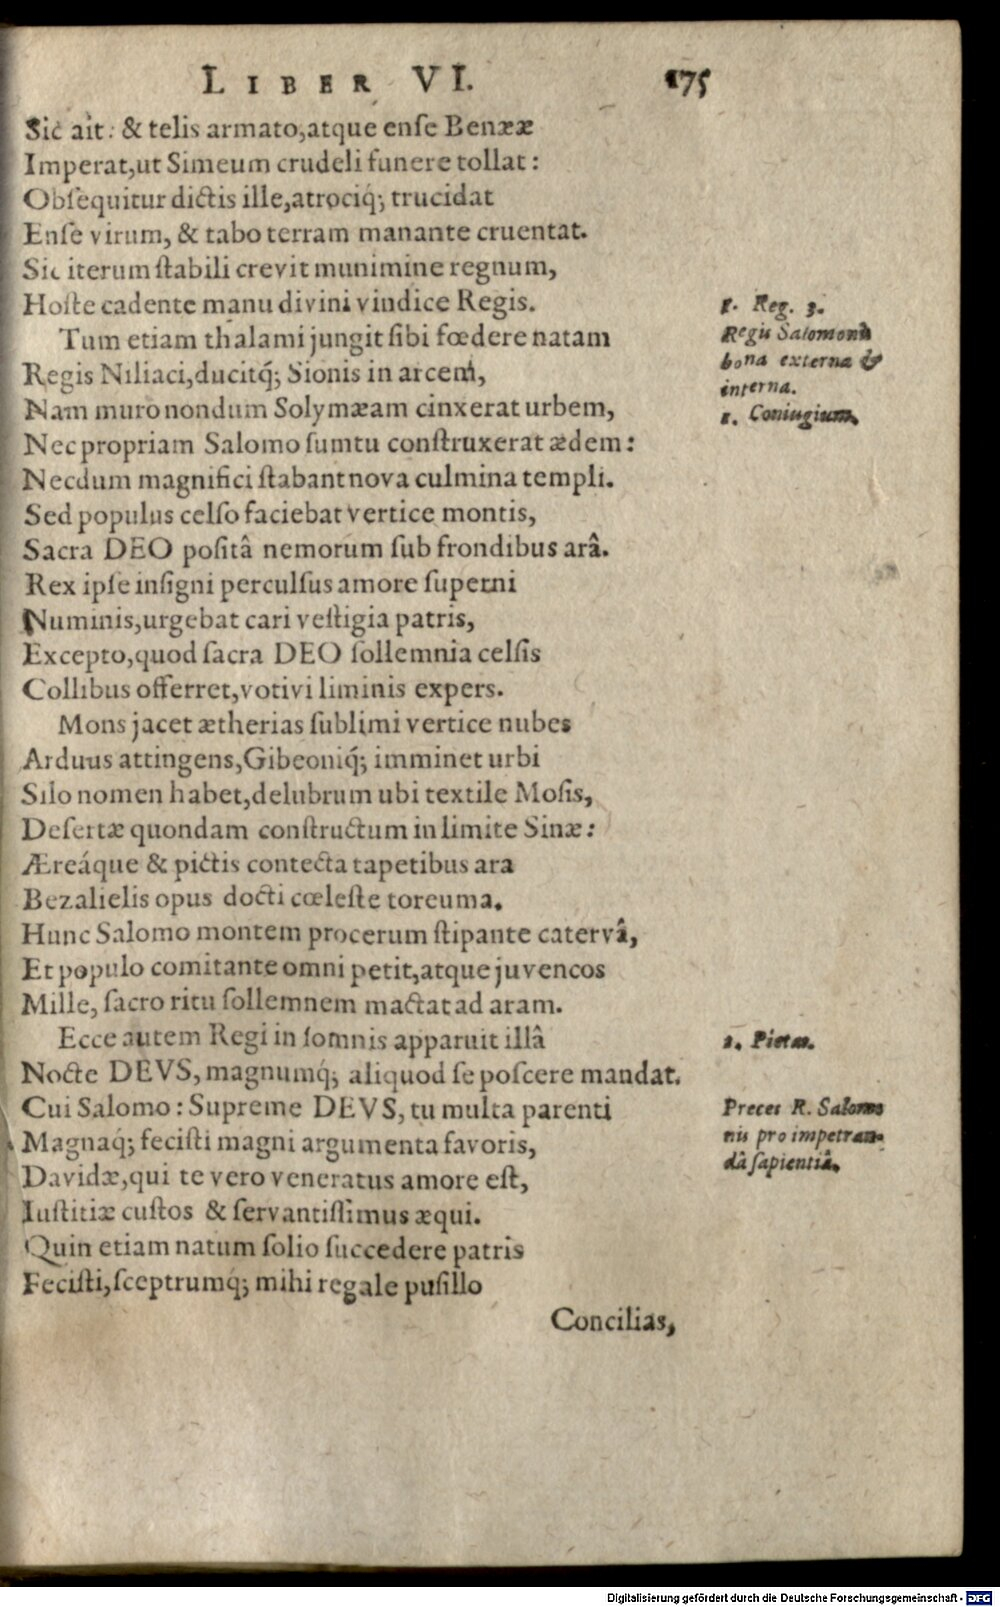 LIBER VI. 175
Sic ait: & telis armato, atque ense Benææ
Imperat, ut Simeum crudeli funere tollat:
Obsequitur dictis ille, atrociq́; trucidat
Ense virum, & tabo terram manante cruentat.
Sic iterum stabili crevit munimine regnum,
Hoste cadente manu divini vindice Regis.
1. Reg. 3.
Tum etiam thalami jungit sibi fœdere natam
Regis Salomonis
Regis Niliaci, ducitq́; Sionis in arcem,
bona externa &
interna.
Nam muro nondum Solymæam cinxerat urbem,
1. Coniugium.
Nec propriam Salomo sumtu construxerat ædem:
Necdum magnifici stabant nova culmina templi.
Sed populus celso faciebat vertice montis,
Sacra DEO positâ nemorum sub frondibus arâ.
Rex ipse insigni perculsus amore superni
Numinis, urgebat cari vestigia patris,
Excepto, quod sacra DEO sollemnia celsis
Collibus offerret, votivi liminis expers.
Mons jacet ætherias sublimi vertice nubes
Arduus attingens, Gibeoniq́; imminet urbi
Silo nomen habet, delubrum ubi textile Mosis,
Desertæ quondam constructum in limite Sinæ:
Æreáque & pictis contecta tapetibus ara
Bezalielis opus docti cœleste toreuma.
Hunc Salomo montem procerum stipante catervâ,
Et populo comitante omni petit, atque juvencos
Mille, sacro ritu sollemnem mactat ad aram.
Ecce autem Regi in somnis apparuit illâ
2. Pietas.
Nocte DEVS, magnumq́; aliquod se poscere mandat.
Cui Salomo: Supreme DEVS, tu multa parenti
Preces R. Salomo
Magnaq́; fecisti magni argumenta favoris,
nis pro impetran-
dâ sapientiâ.
Davidæ, qui te vero veneratus amore est,
Iustitiæ custos & servantissimus æqui.
Quin etiam natum solio succedere patris
Fecisti, sceptrumq́; mihi regale pusillo
Concilias,
Digitalisierung gefördert durch die Deutsche Forschungsgemeinschaft - DFG